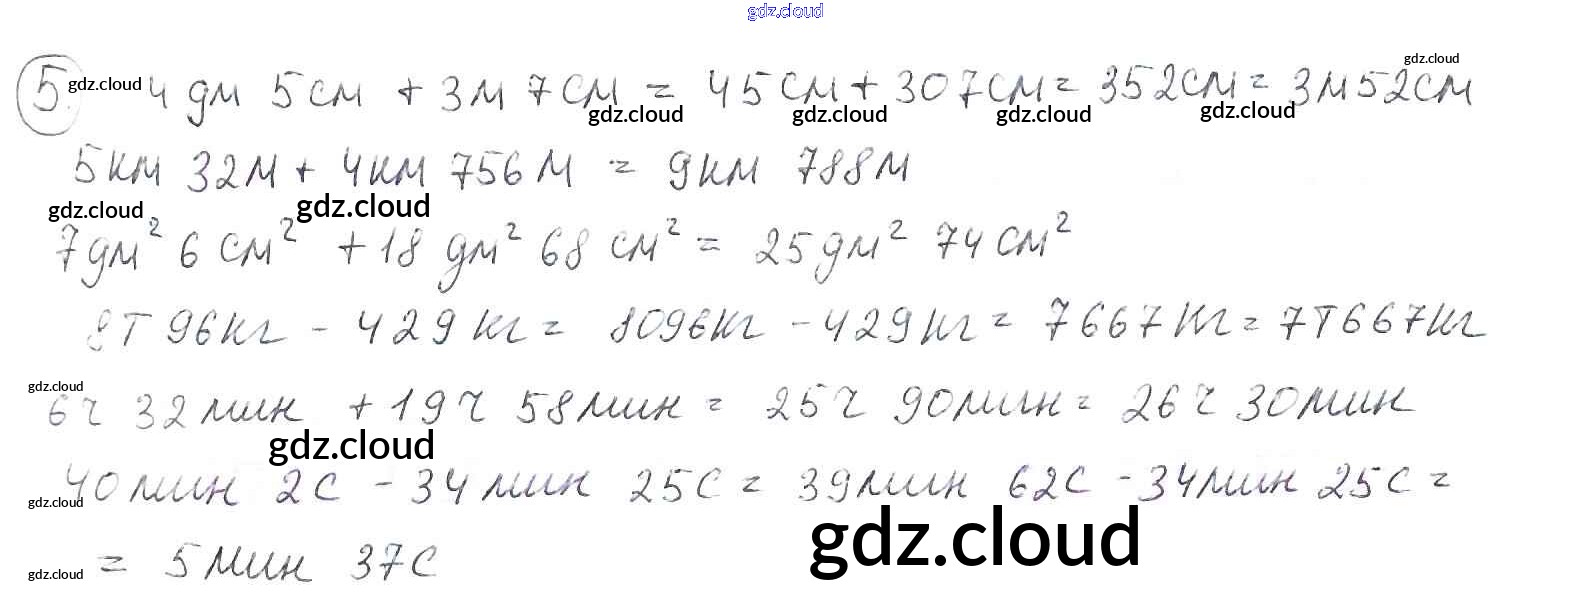 gdz.cloud
5. 4 дм 5 см + 3 м 7 см = 45 см + 307 см = 352 см = 3 м 52 см
gdz.cloud gdz.cloud
gdz.cloud gdz.cloud gdz.cloud gdz.cloud
5 км 32 м + 4 км 756 м = 9 км 788 м
gdz.cloud gdz.cloud
7 дм² 6 см² + 18 дм² 68 см² = 25 дм² 74 см²
8 т 96 кг - 429 кг = 8096 кг - 429 кг = 7667 кг = 7 т 667 кг
gdz.cloud
6 ч 32 мин + 19 ч 58 мин = 25 ч 90 мин = 26 ч 30 мин
gdz.cloud
40 мин 2 с - 34 мин 25 с = 39 мин 62 с - 34 мин 25 с =
gdz.cloud
gdz.cloud
= 5 мин 37 с
gdz.cloud